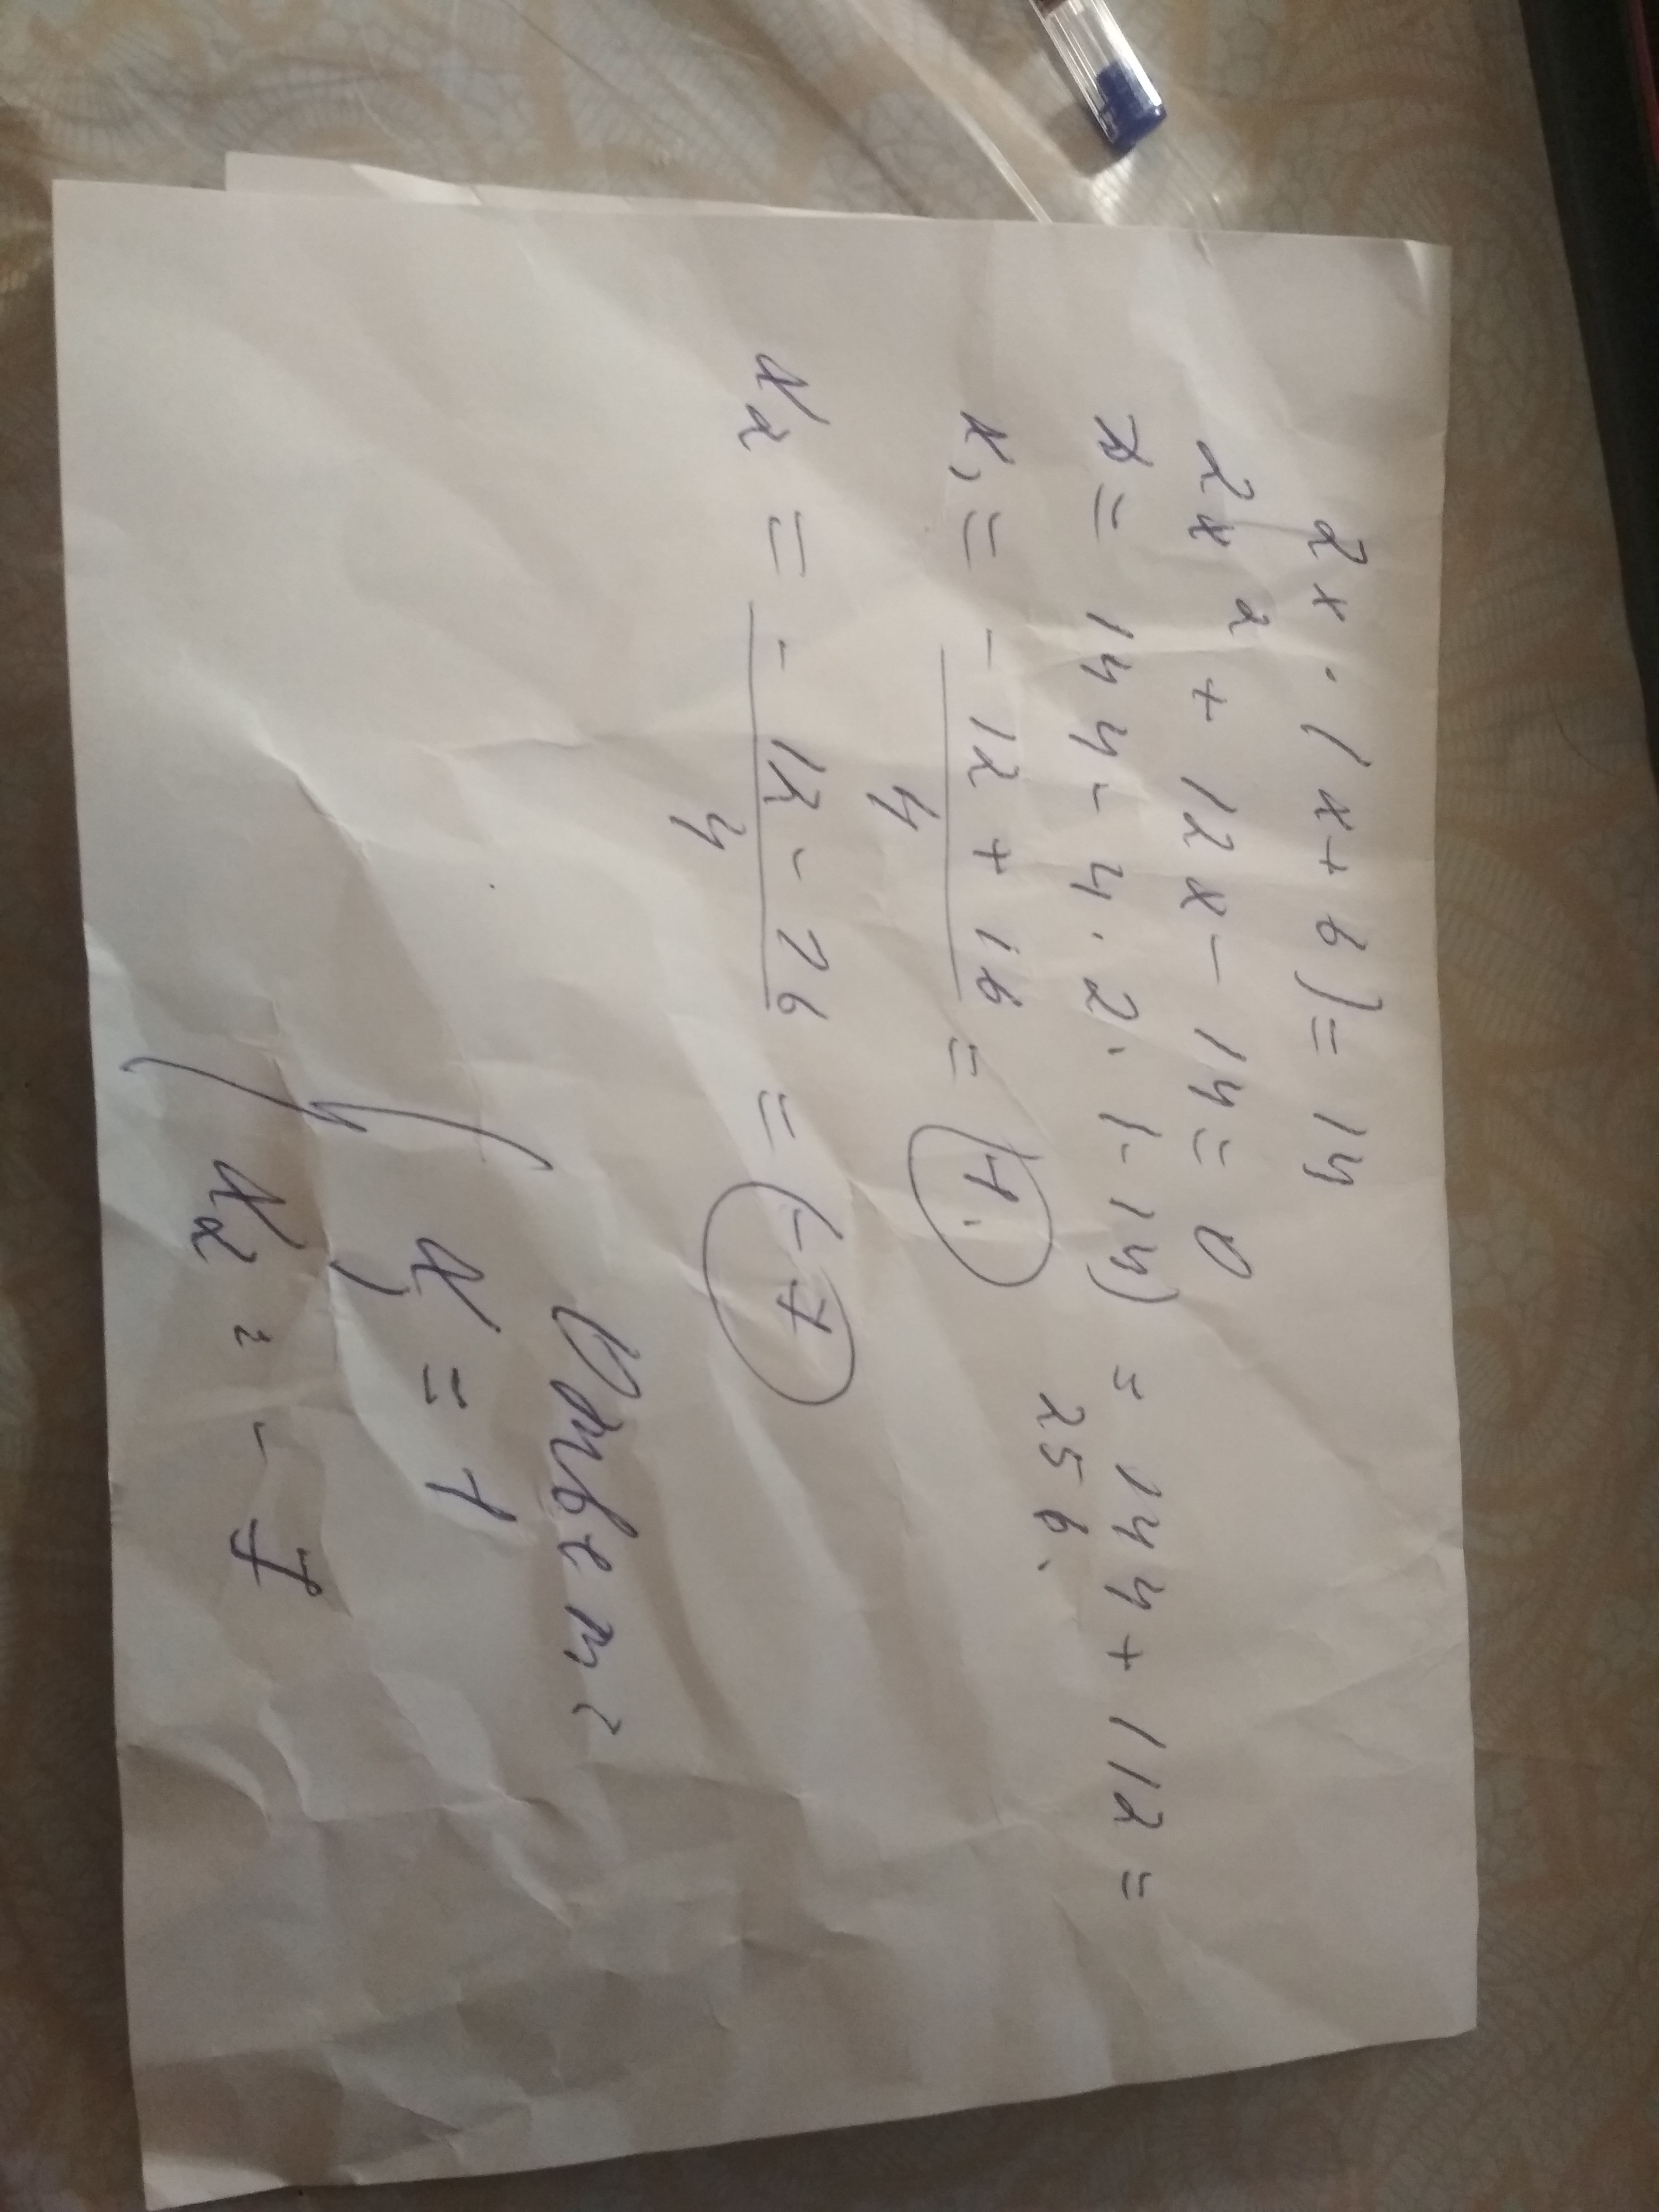 2x · (x + 6) = 14
2x² + 12x - 14 = 0
D = 144 - 4 · 2 · (-14) = 144 + 112 =
256.
x₁ = -12 + 16 / 4 = 1.
x₂ = -12 - 26 / 4 = -7
Ответ:
{ x₁ = 1
x₂ = -7